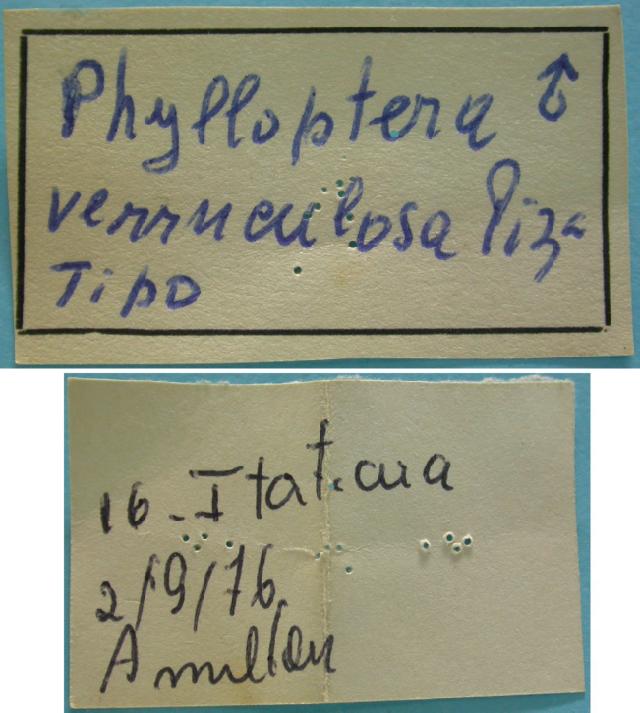 Phylloptera ♂
verruculosa Piza
Tipo
16-Itatiaia
2/9/76